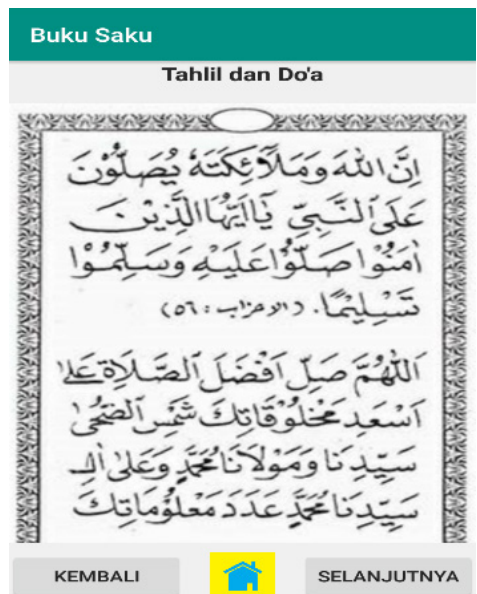 Buku Saku
Tahlil dan Do'a
اِنَّ اللهَ وَمَلَآئِكَتَهٗ يُصَلُّوْنَ
عَلَى النَّبِيِّ يَآاَيُّهَا الَّذِيْنَ
اٰمَنُوْا صَلُّوْا عَلَيْهِ وَسَلِّمُوْا
تَسْلِيْمًا. (الاحزاب : ٥٦)
اَللّٰهُمَّ صَلِّ اَفْضَلَ الصَّلَاةِ عَلٰى
اَسْعَدِ مَخْلُوْقَاتِكَ شَمْسِ الضُّحٰى
سَيِّدِنَا وَمَوْلَانَا مُحَمَّدٍ وَعَلٰى اٰلِ
سَيِّدِنَا مُحَمَّدٍ عَدَدَ مَعْلُوْمَاتِكَ
KEMBALI
SELANJUTNYA